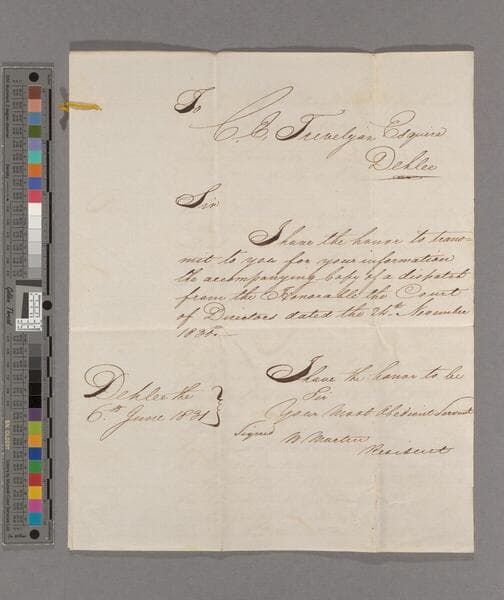 To
C. E. Trevelyan Esquire
Dehlee
Sir
I have the honor to trans-
mit to you for your information
the accompanying Copy of a dispatch
from the Honorable the Court
of Directors dated the 24th November
1830.
I have the honor to be
Sir
Your Most Obedient Servant
Signed W. Martin
Resident
Dehlee the
6th June 1831